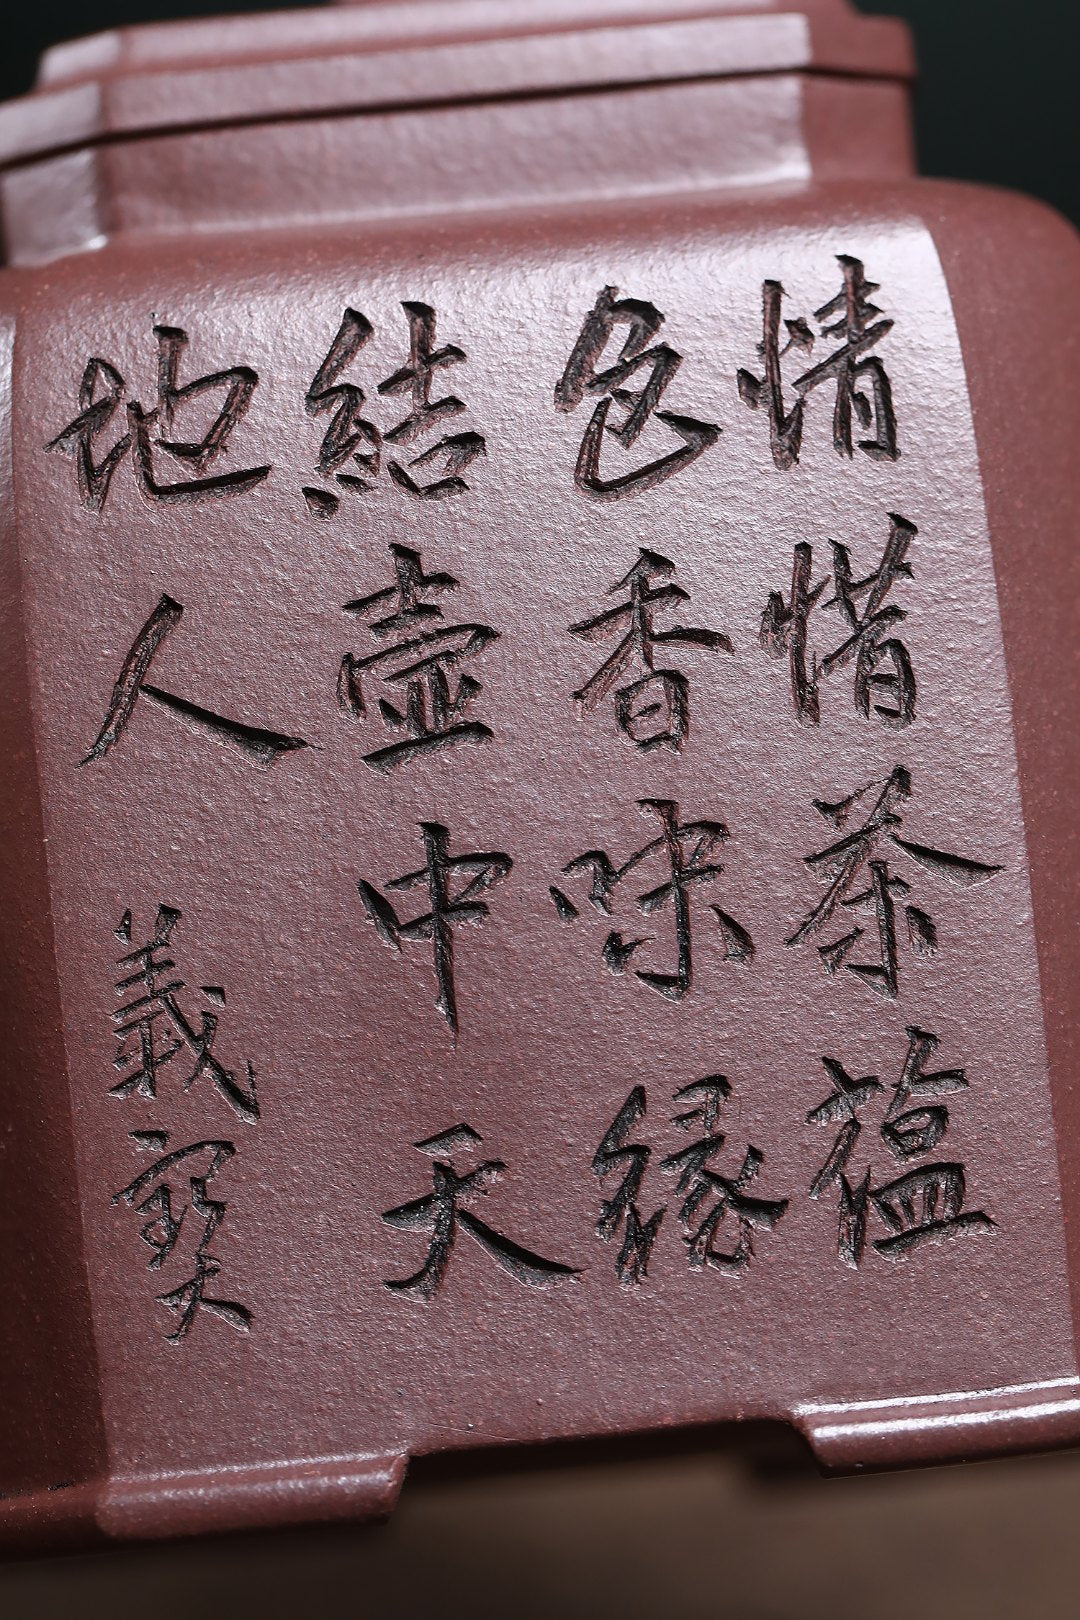 情惜茶蘊
色香味緣
結壺中天
地人
義寶